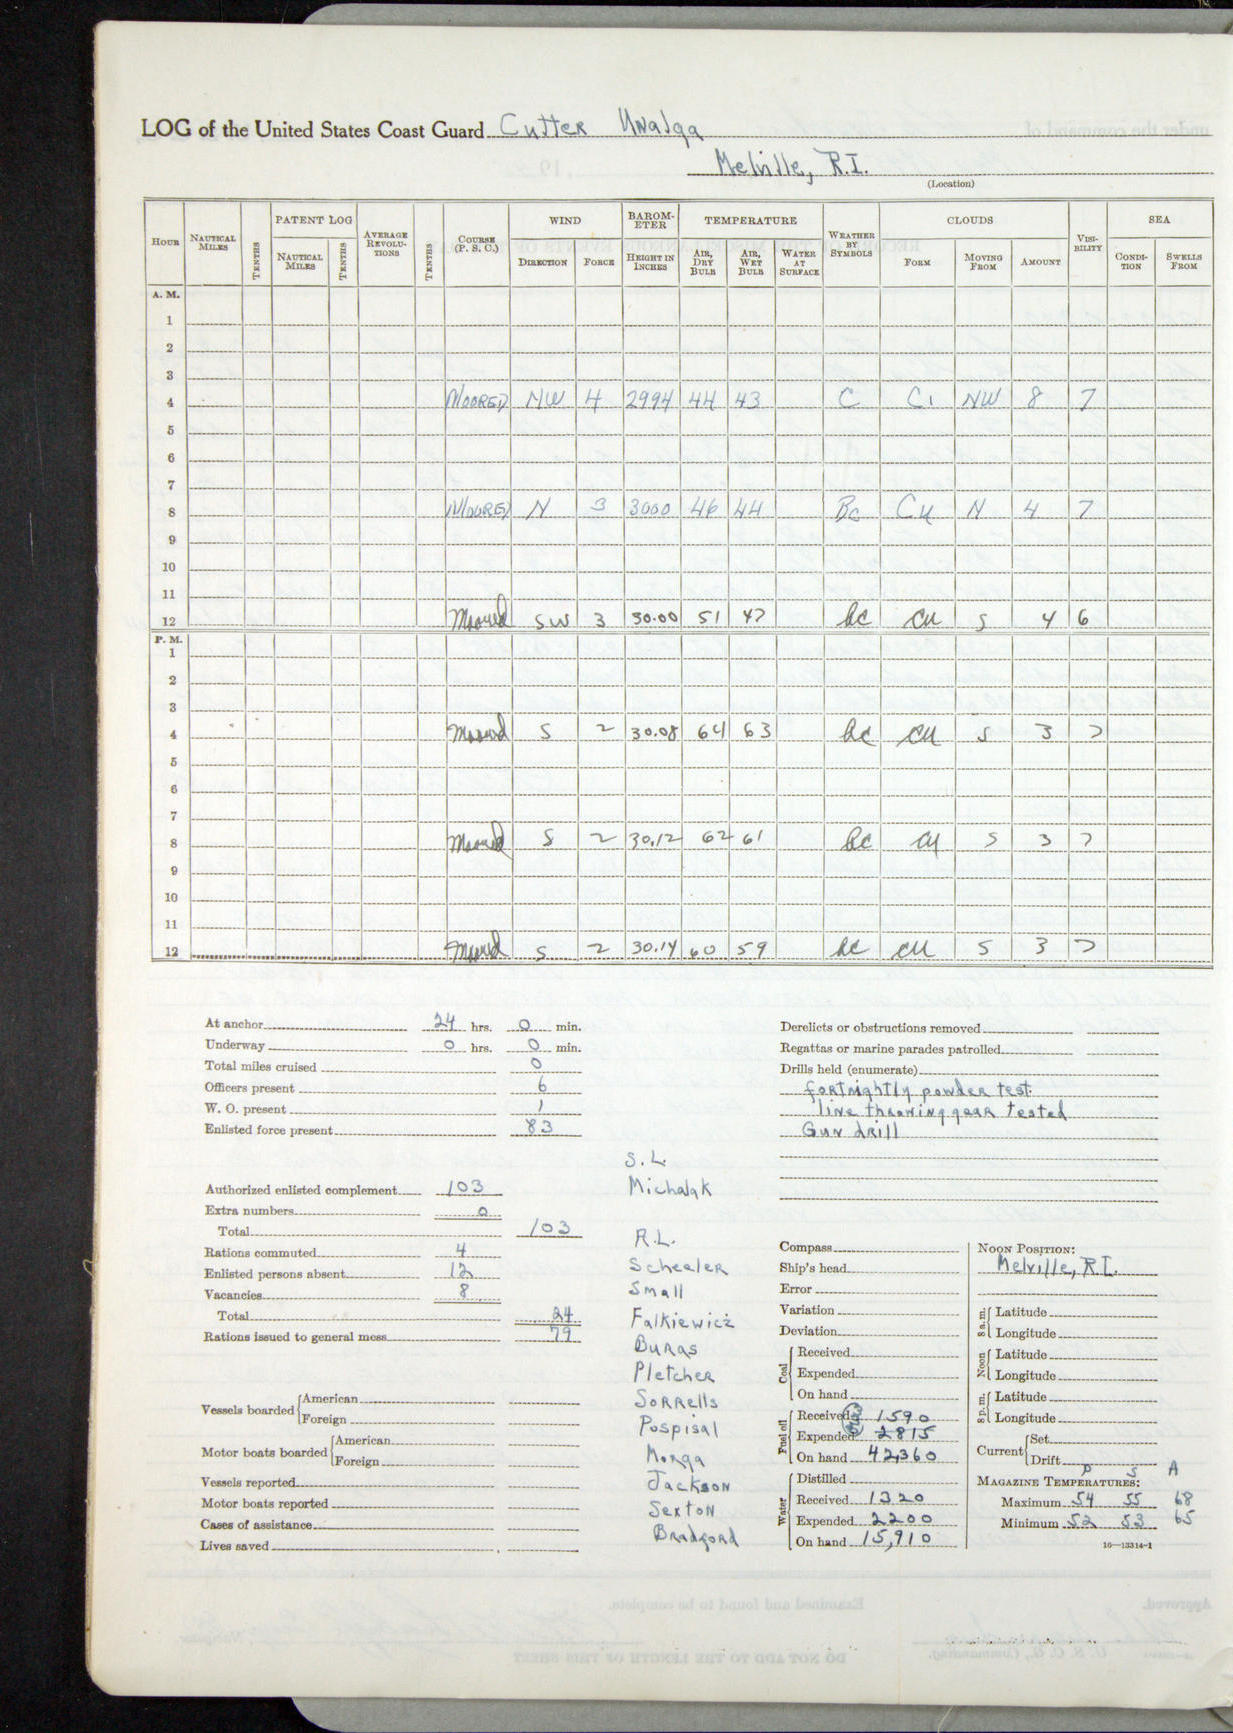 LOG of the United States Coast Guard Cutter Unalga
Melville, R.I.
(Location)
HOUR NAUTICAL MILES TENTHS PATENT LOG NAUTICAL MILES TENTHS AVERAGE REVOLUTIONS TENTHS COURSE (P. S. C.) WIND DIRECTION FORCE BAROMETER HEIGHT IN INCHES TEMPERATURE AIR, DRY BULB AIR, WET BULB WATER AT SURFACE WEATHER BY SYMBOLS CLOUDS FORM MOVING FROM AMOUNT VISIBILITY SEA CONDITION SWELLS FROM
A. M.
1
2
3
4 MOORED NW 4 2994 44 43 C Ci NW 8 7
5
6
7
8 MOORED N 3 3000 46 44 Bc Cu N 4 7
9
10
11
12 Moored SW 3 30.00 51 47 bc cu S 4 6
P. M.
1
2
3
4 Moored S 2 30.08 64 63 bc cu S 3 7
5
6
7
8 Moored S 2 30.12 62 61 bc cu S 3 7
9
10
11
12 Moored S 2 30.14 60 59 bc cu S 3 7
At anchor 24 hrs. 0 min.
Underway 0 hrs. 0 min.
Total miles cruised 0
Officers present 6
W. O. present 1
Enlisted force present 83
Authorized enlisted complement 103
Extra numbers 0
Total 103
Rations commuted 4
Enlisted persons absent 12
Vacancies 8
Total 24
Rations issued to general mess 79
Vessels boarded American
Foreign
Motor boats boarded American
Foreign
Vessels reported
Motor boats reported
Cases of assistance
Lives saved
S.L.
Michalak
R.L.
Scheeler
Small
Falkiewicz
Buras
Pletcher
Sorrells
Pospisal
Morga
Jackson
Sexton
Bradford
Derelicts or obstructions removed
Regattas or marine parades patrolled
Drills held (enumerate)
fortnightly powder test.
line throwing gear tested
Gun drill
Compass
Ship's head
Error
Variation
Deviation
Coal Received
Expended
On hand
Fuel oil Received 1590
Expended 2815
On hand 42,360
Water Distilled
Received 1320
Expended 2200
On hand 15,910
NOON POSITION:
Melville, R.I.
8 a. m. Latitude
Longitude
Noon Latitude
Longitude
8 p. m. Latitude
Longitude
Current Set
Drift
P S A
MAGAZINE TEMPERATURES:
Maximum 54 55 68
Minimum 52 53 65
16—13314-1